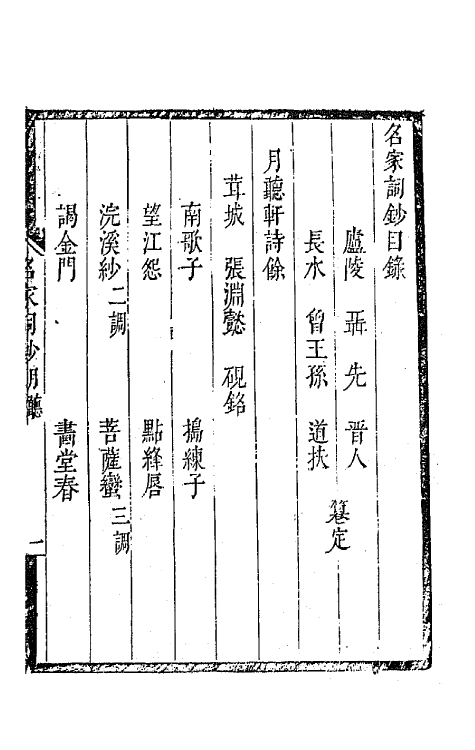 名家詞鈔目錄
廬陵 聶先 晉人
長水 曾王孫 道扶
纂定
月聽軒詩餘
茸城 張淵懿 硯銘
南歌子 搗練子
望江怨 點絳唇
浣溪紗二調 菩薩蠻三調
謁金門 畵堂春
名家詞鈔月聽 一